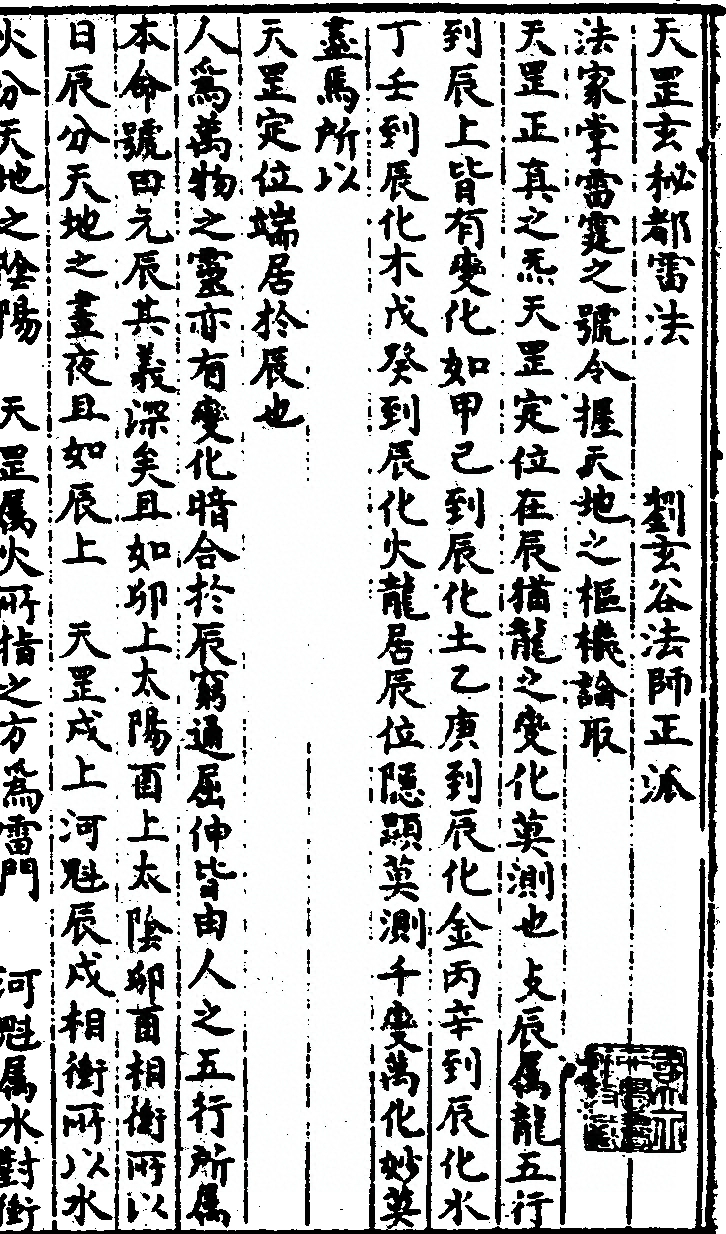 天罡玄秘都雷法　劉玄谷法師正派
法家掌雷霆之號令握天地之樞機論取
天罡正真之炁天罡定位在辰猶龍之變化莫測也攴辰属龍五行
到辰上皆有變化如甲己到辰化土乙庚到辰化金丙辛到辰化水
丁壬到辰化木戊癸到辰化火龍居辰位隱顯莫測千變萬化妙莫
盡焉所以
天罡定位端居於辰也
人爲萬物之靈亦有變化暗合於辰窮通屈伸皆由人之五行所属
本命號曰元辰其義深矣且如卯上太陽酉上太陰卯酉相衝所以
日辰分天地之晝夜且如辰上　天罡戌上河魁辰戌相衝所以水
火分天地之陰陽　天罡属火所指之方爲雷門　河魁属水對衝